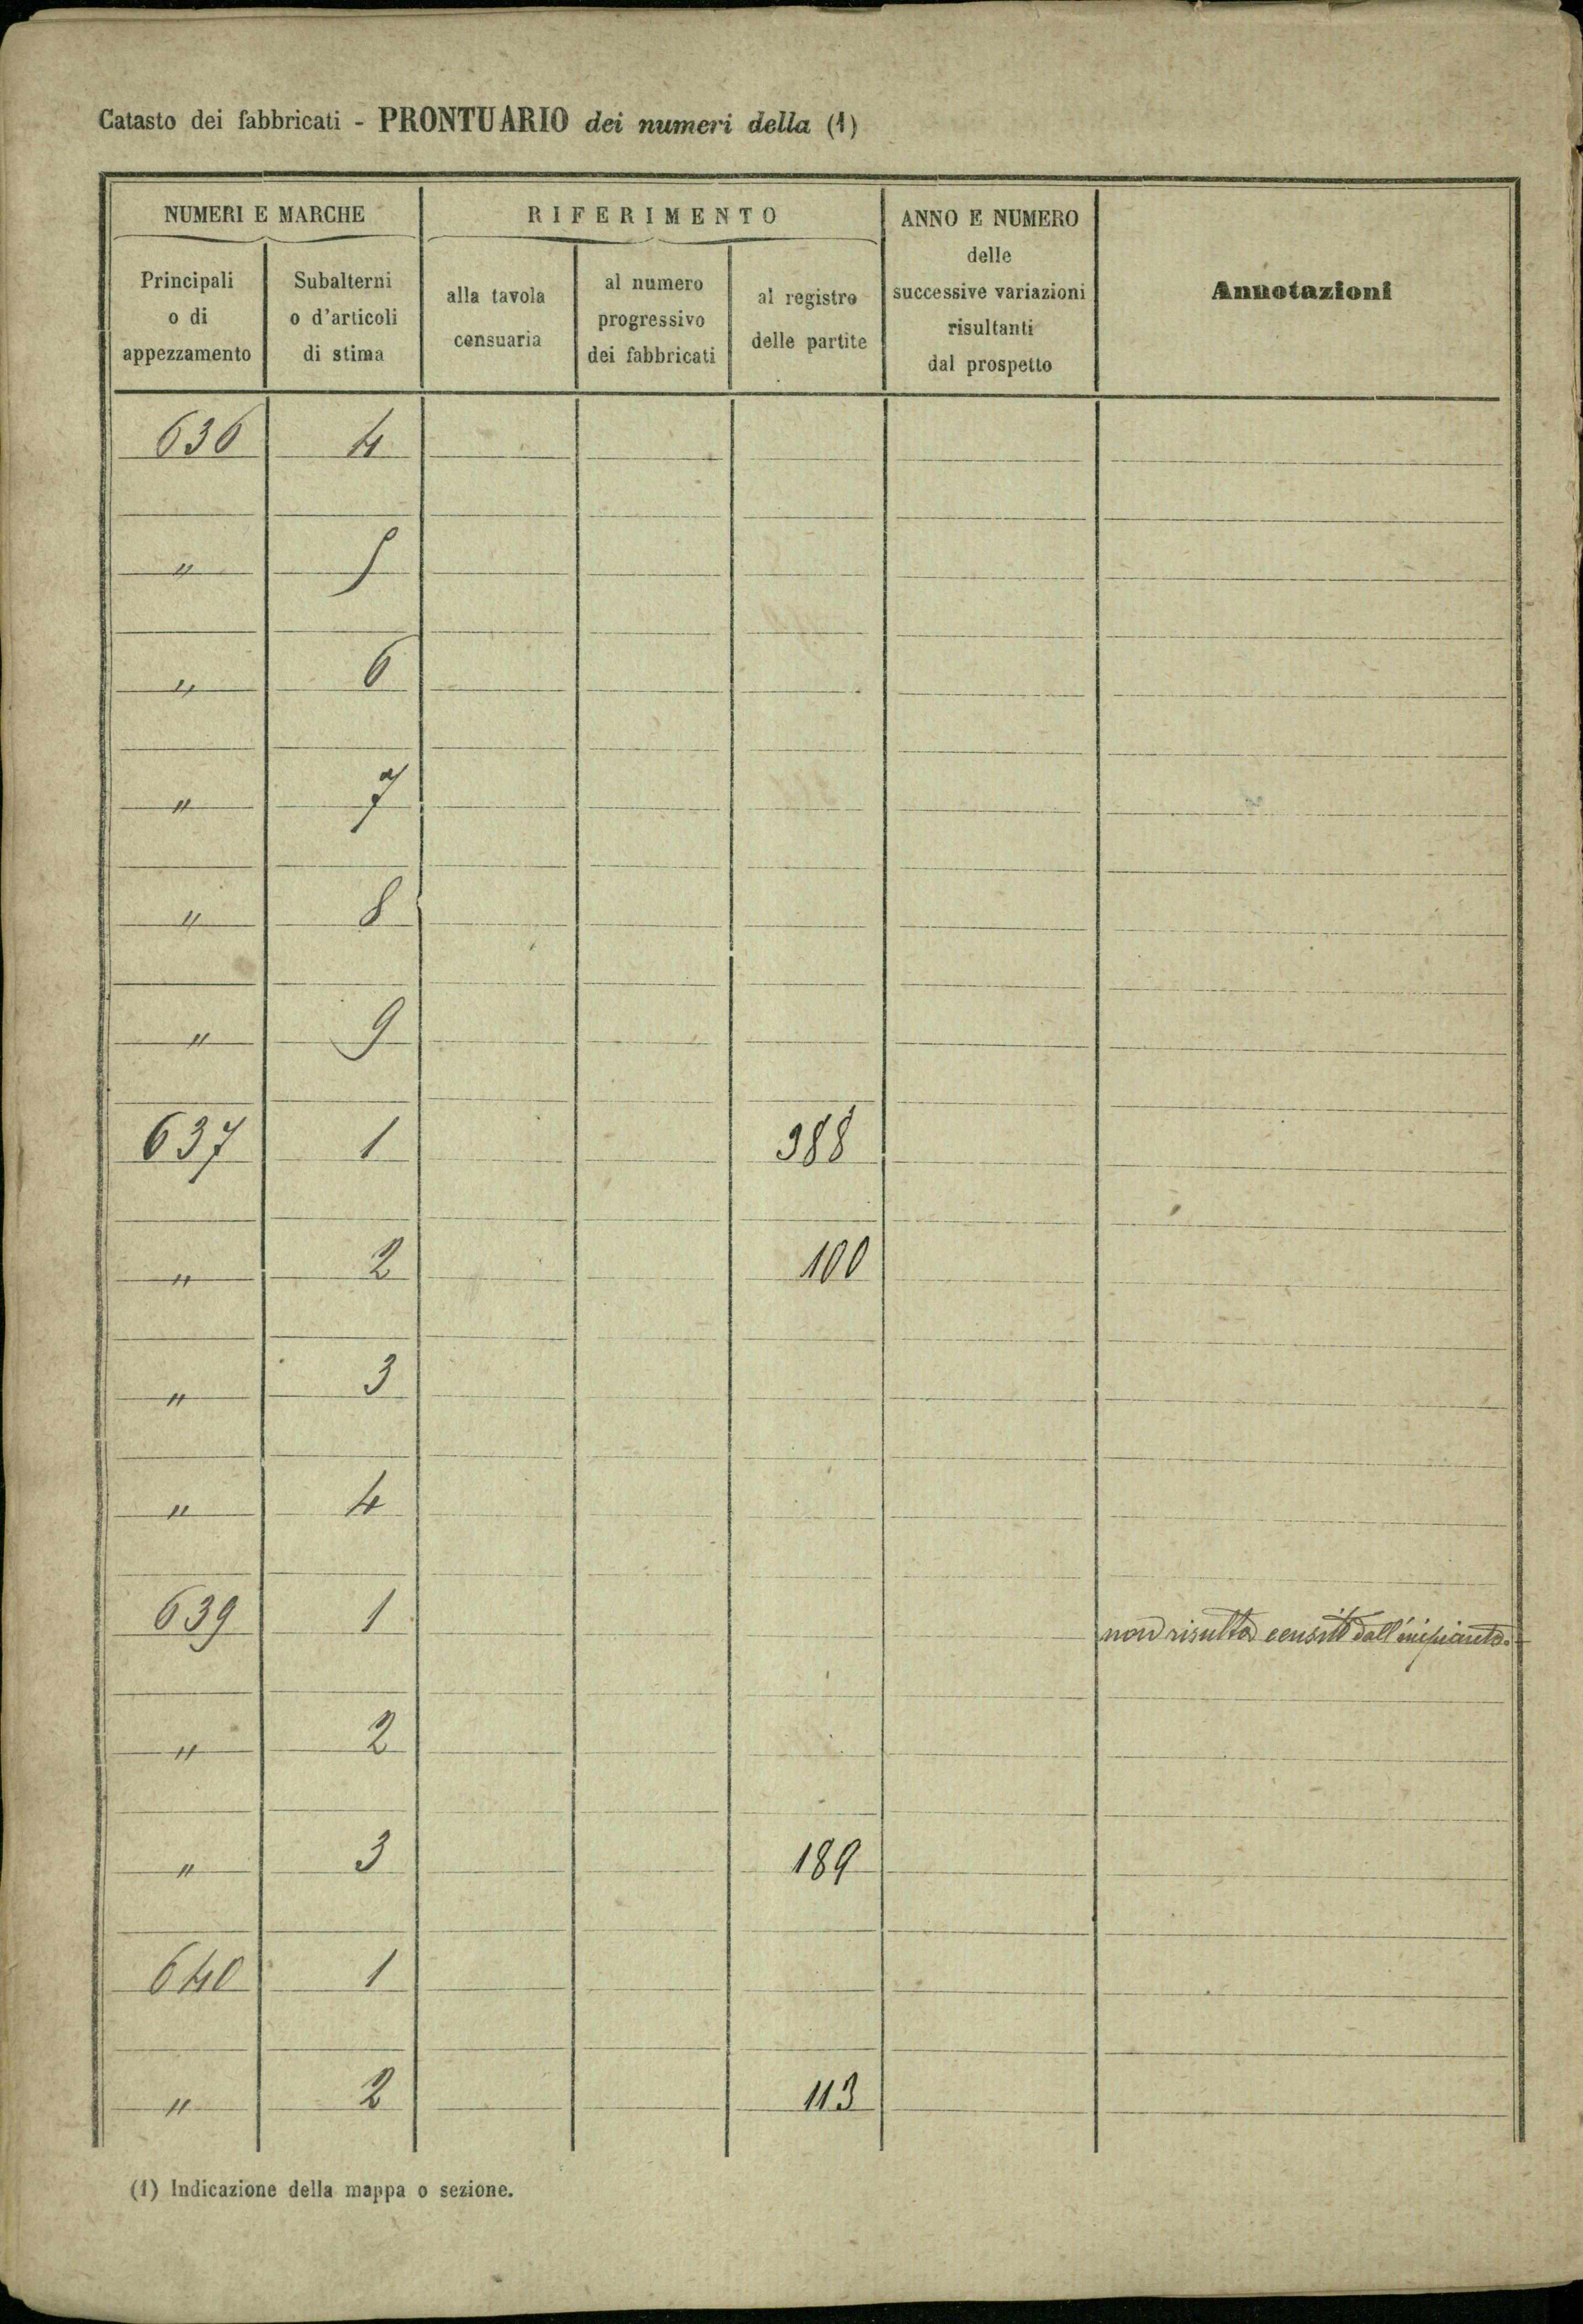 Catasto dei fabbricati - PRONTUARIO dei numeri della (1)
NUMERI E MARCHE
RIFERIMENTO
ANNO E NUMERO
delle
successive variazioni
risultanti
dal prospetto
Annotazioni
Principali
o di
appezzamento
Subalterni
o d'articoli
di stima
alla tavola
censuaria
al numero
progressivo
dei fabbricati
al registro
delle partite
636 4
" 5
" 6
" 7
" 8
" 9
637 1 388
" 2 100
" 3
" 4
639 1 non risulta censito dall'impianto.
" 2
" 3 189
640 1
" 2 113
(1) Indicazione della mappa o sezione.